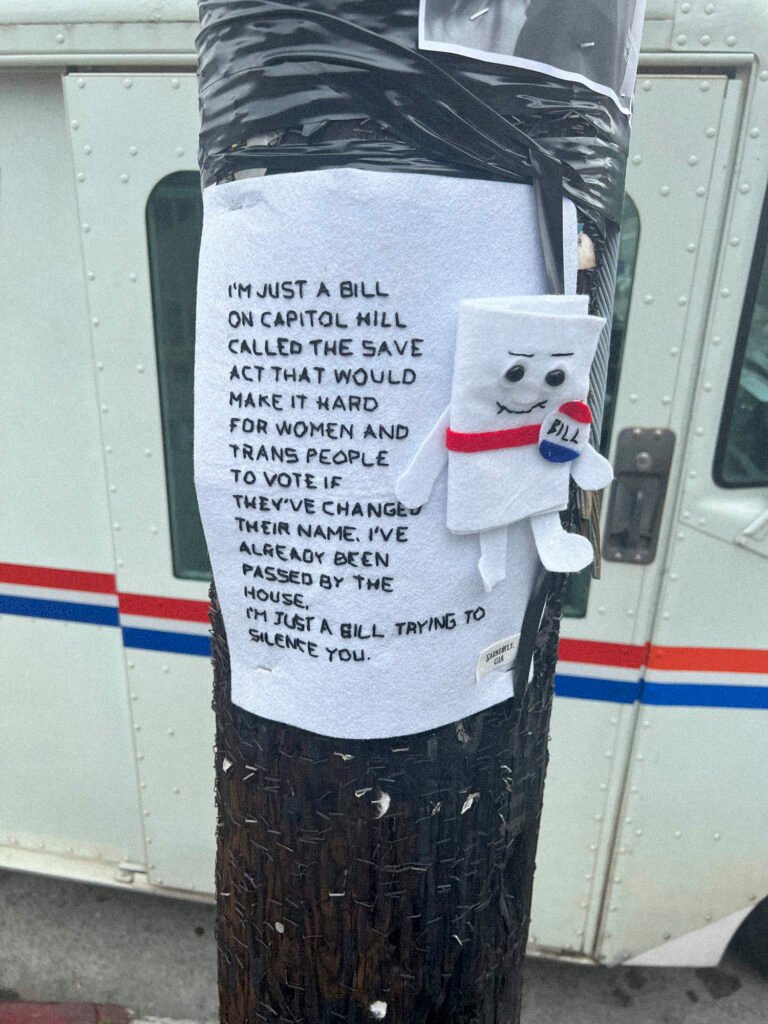 I'M JUST A BILL
ON CAPITOL HILL
CALLED THE SAVE
ACT THAT WOULD
MAKE IT HARD
FOR WOMEN AND
TRANS PEOPLE
TO VOTE IF
THEY'VE CHANGED
THEIR NAME. I'VE
ALREADY BEEN
PASSED BY THE
HOUSE.
I'M JUST A BILL TRYING TO
SILENCE YOU.
BILL